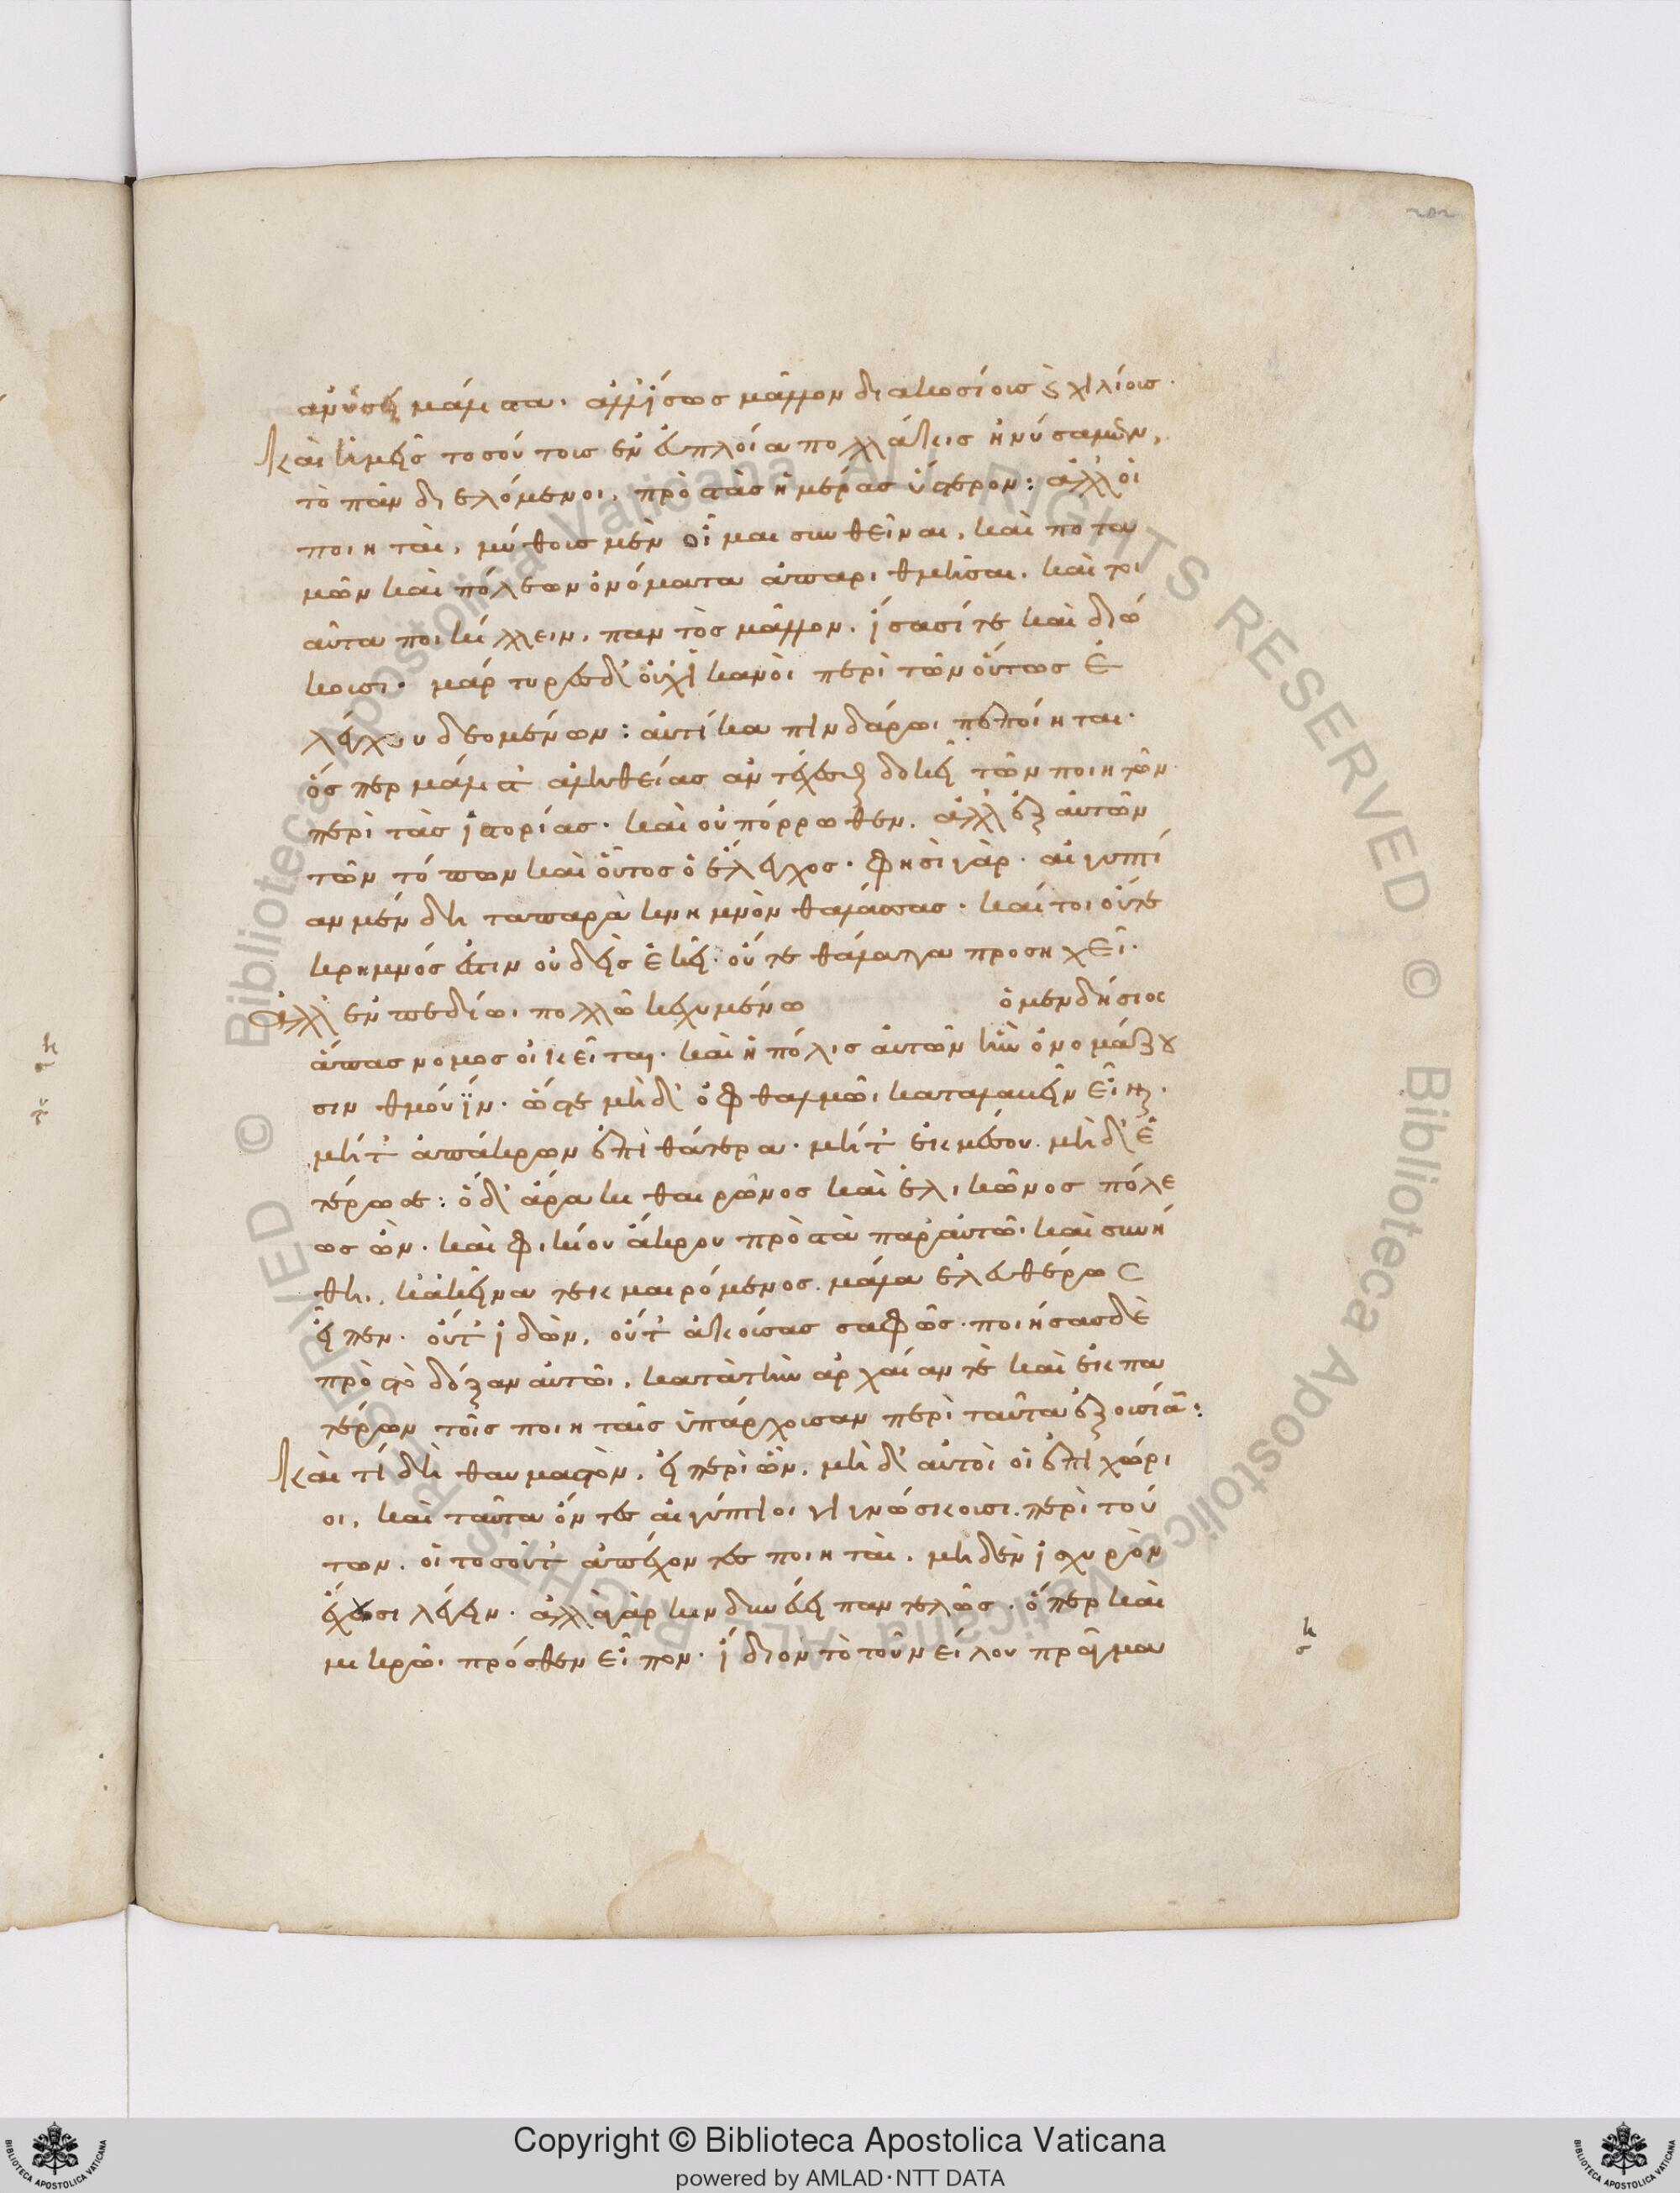 ἀνύσει μάλιστα. ἀλλ' ἴσως μᾶλλον διακοσίοις καὶ χιλίοις.
καὶ ἡμεῖς τοσούτοις ἐν εὐπλοία πολλάκις ἠνύσαμεν,
τὸ πᾶν διελόμενοι, πρὸς τὰς ἡμέρας ὕστερον: ἀλλ' οἱ
ποιηταὶ, μύθοις μὲν οἶμαι συνθεῖναι, καὶ ποτα
μῶν καὶ πόλεων ὀνόματα ἀπαριθμῆσαι. καὶ τοι
αῦτα ποικίλλειν, παντὸς μᾶλλον. ἴσασί τε καὶ διώ
κουσι. μάρτυρες δ' οὐχ ἱκανοὶ περὶ τῶν οὕτως ἐ
λέγχου δεομένων: αὐτίκα πινδάρωι πεποίηται.
ὅσπερ μάλιστ' ἀληθείας ἀντέχεσθαι δοκεῖ τῶν ποιητῶν
περὶ τὰς ἱστορίας. καὶ οὐ πόρρωθεν. ἀλλ' ἐξ αὐτῶν
τῶν τόπων καὶ οὗτος ὁ ἔλεγχος. φησὶ γὰρ. αἰγυπτί
αν μένδητα παρὰ κρημνὸν θαλάσσας. καίτοι οὔτε
κρημνός ἐστιν οὐδεὶς ἐκεῖ. οὔτε θάλαττα προσηχεῖ.
ἀλλ' ἐν πεδίωι πολλῶ κεχυμένω ὁ μενδήσιος
ἅπας νομὸς οἰκεῖται. καὶ ἡ πόλις αὐτῶν ἣν ὀνομάζου
σιν θμούϊν. ὥστε μὴδ' ὀφθαλμῶι καταλαβεῖν εἶναι.
μήτ' ἀπάκρων ἐπὶ θάτερα. μήτ' ἐκ μέσου. μὴδ' ἑ
τέρωσε: ὁ δ' ἄρα κιθαιρῶνος καὶ ἑλικῶνος πόλε
ως ὢν. καὶ φικίου ἄκρου πρὸς τὰ παρ' αὐτῶι καὶ συνή
θη, κἀκεῖνα τεκμαιρόμενος. μάλα ἐλευθέρως
εἶπεν. οὔτ' ἰδὼν, οὔτ' ἀκούσας σαφῶς. ποιήσας δὲ
πρὸς τὸ δόξαν αὐτῶι, κατὰ τὴν ἀρχαίαν τὲ καὶ ἐκ πα
τέρων τοῖς ποιηταῖς ὑπάρχουσαν περὶ ταῦτα ἐξουσίαν:
καὶ τί δὴ θαυμαστὸν, εἰ περὶ ὧν, μὴδ' αὐτοὶ οἱ ἐπιχώρι
οι, καὶ ταῦτα ὄντες αἰγύπτιοι γιγνώσκουσι. περὶ τού
των. οἱ τοσοῦτ' ἀπέχοντες ποιηταὶ. μηδὲν ἰσχυρὸν
ἔχουσι λέγειν. ἀλλὰ γὰρ κινδυνεύει παντελῶς. ὅπερ καὶ
μικρῶι πρόσθεν εἶπον. ἴδιον τὸ τοῦ νείλου πρᾶγμα
Copyright © Biblioteca Apostolica Vaticana
powered by AMLAD·NTT DATA